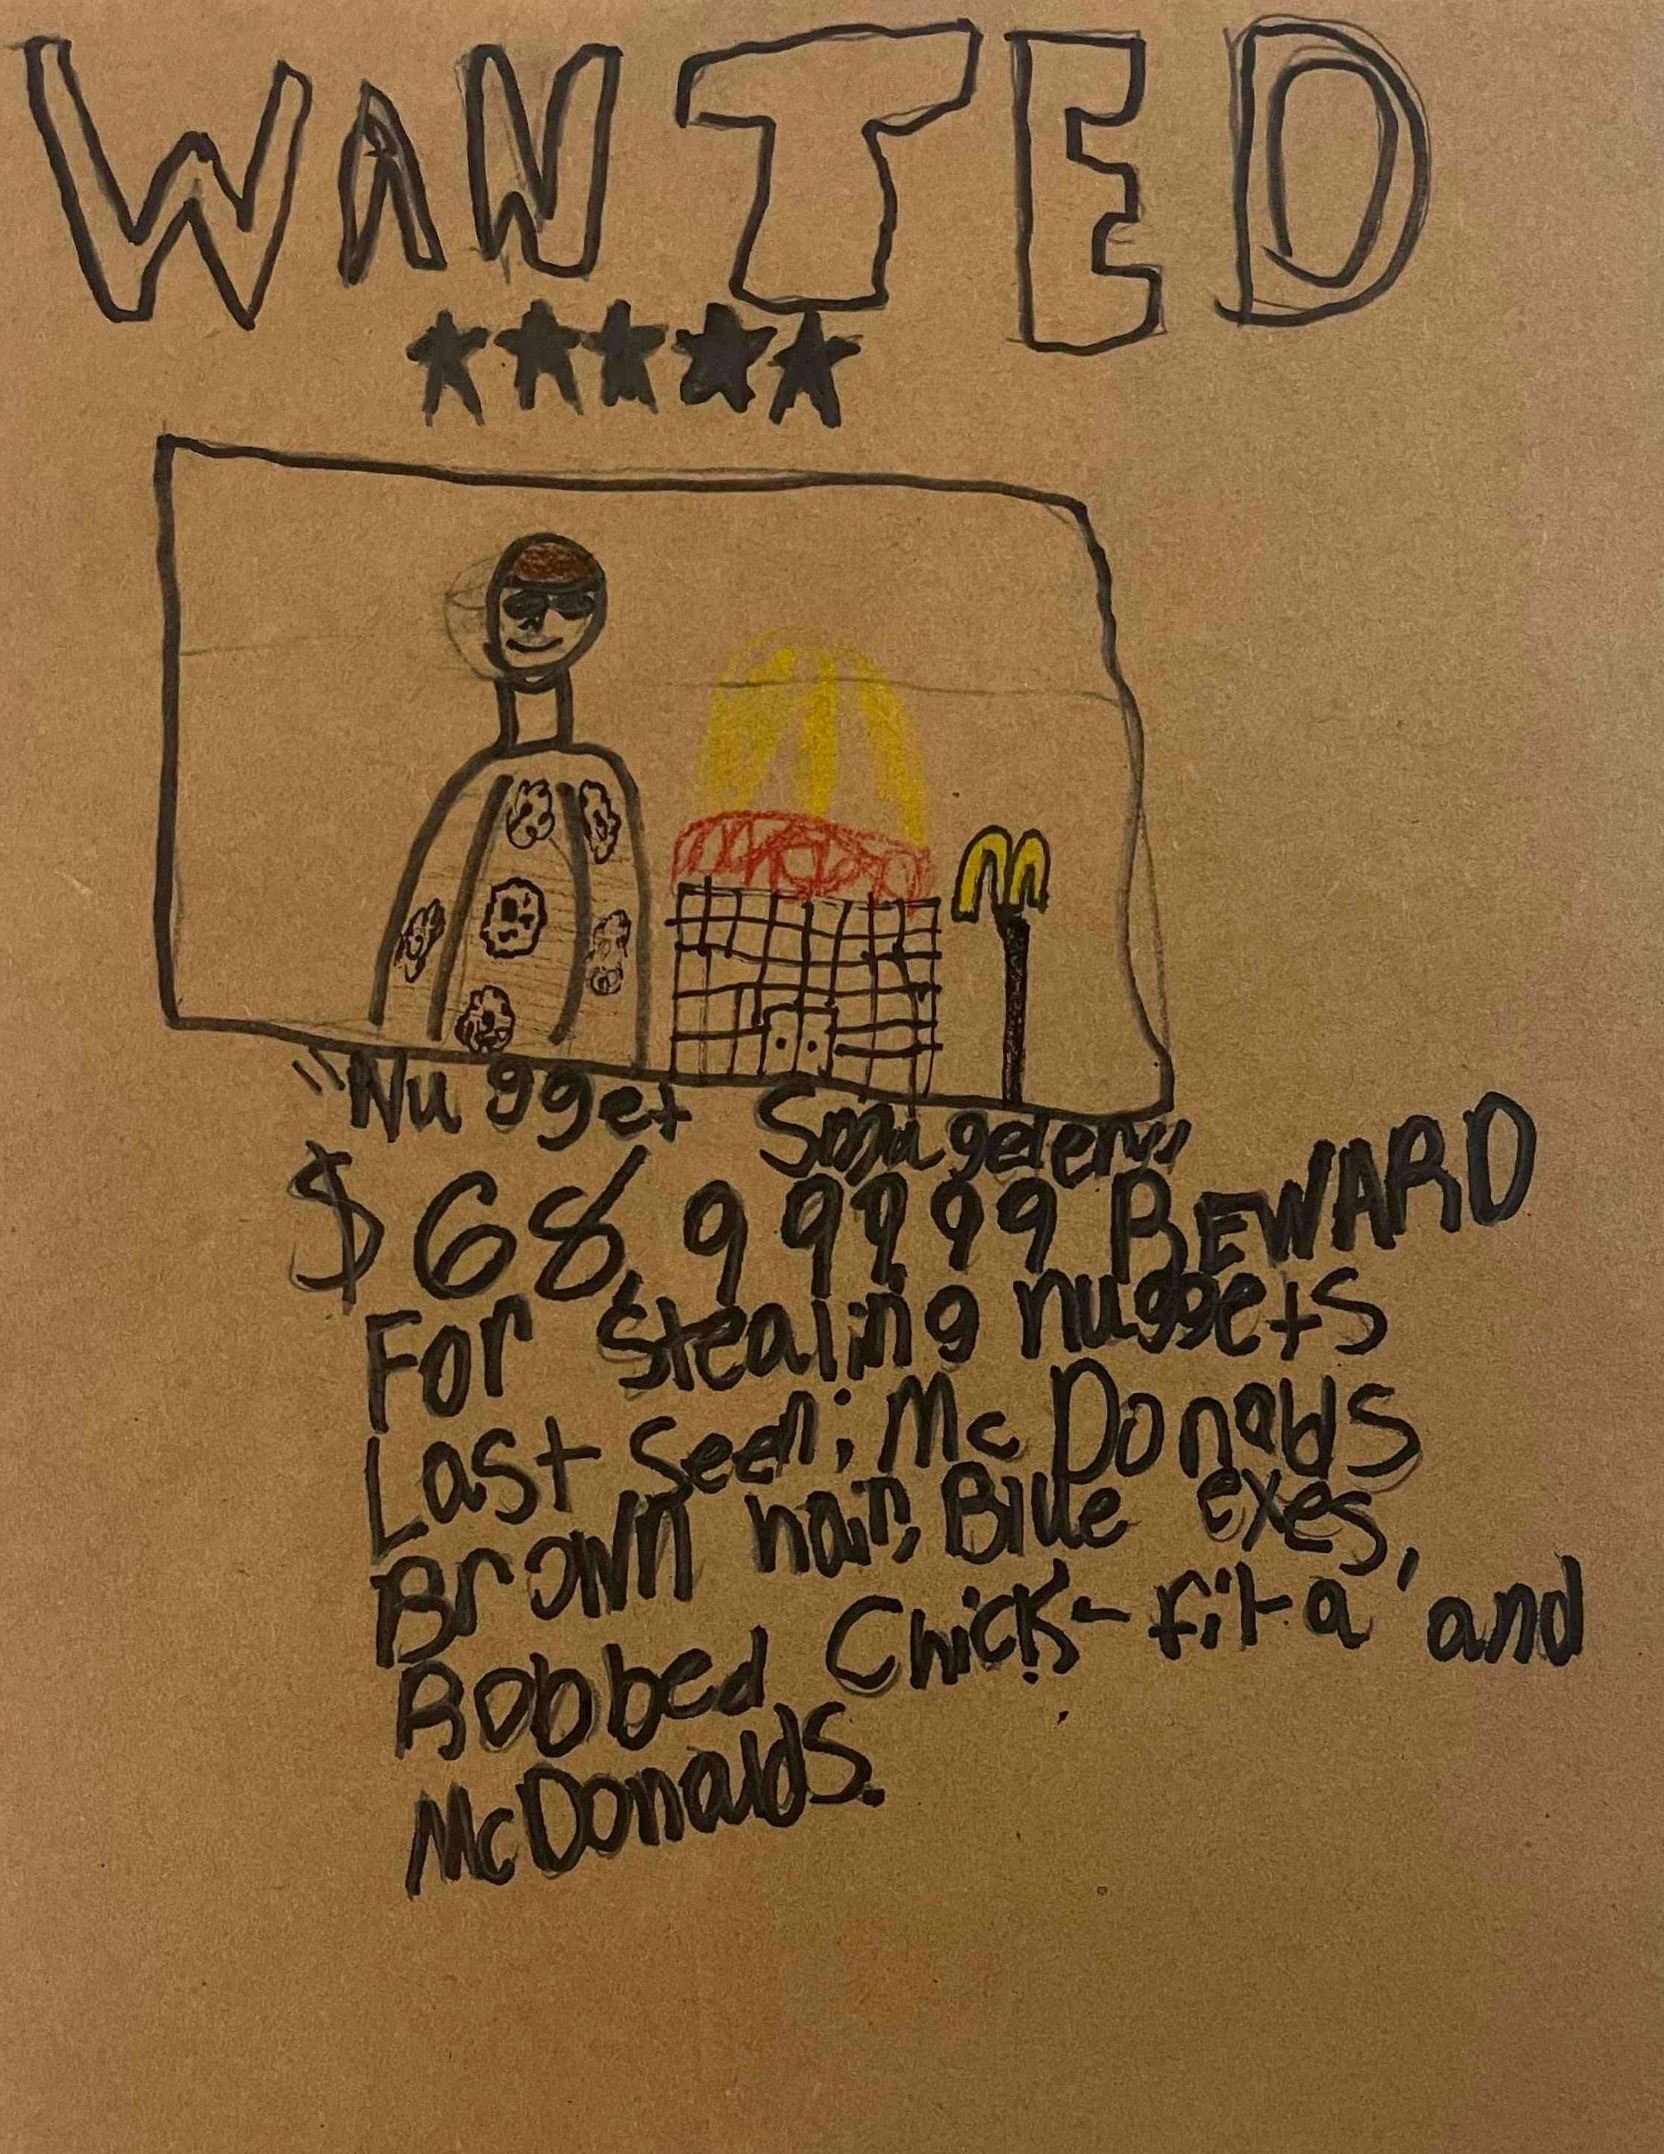 WANTED
"Nugget Smugelers"
$68,99999 REWARD
For stealing nuggets
Last seen; McDonalds
Brown hair, Blue eyes,
Robbed Chick-fil-a and
McDonalds.